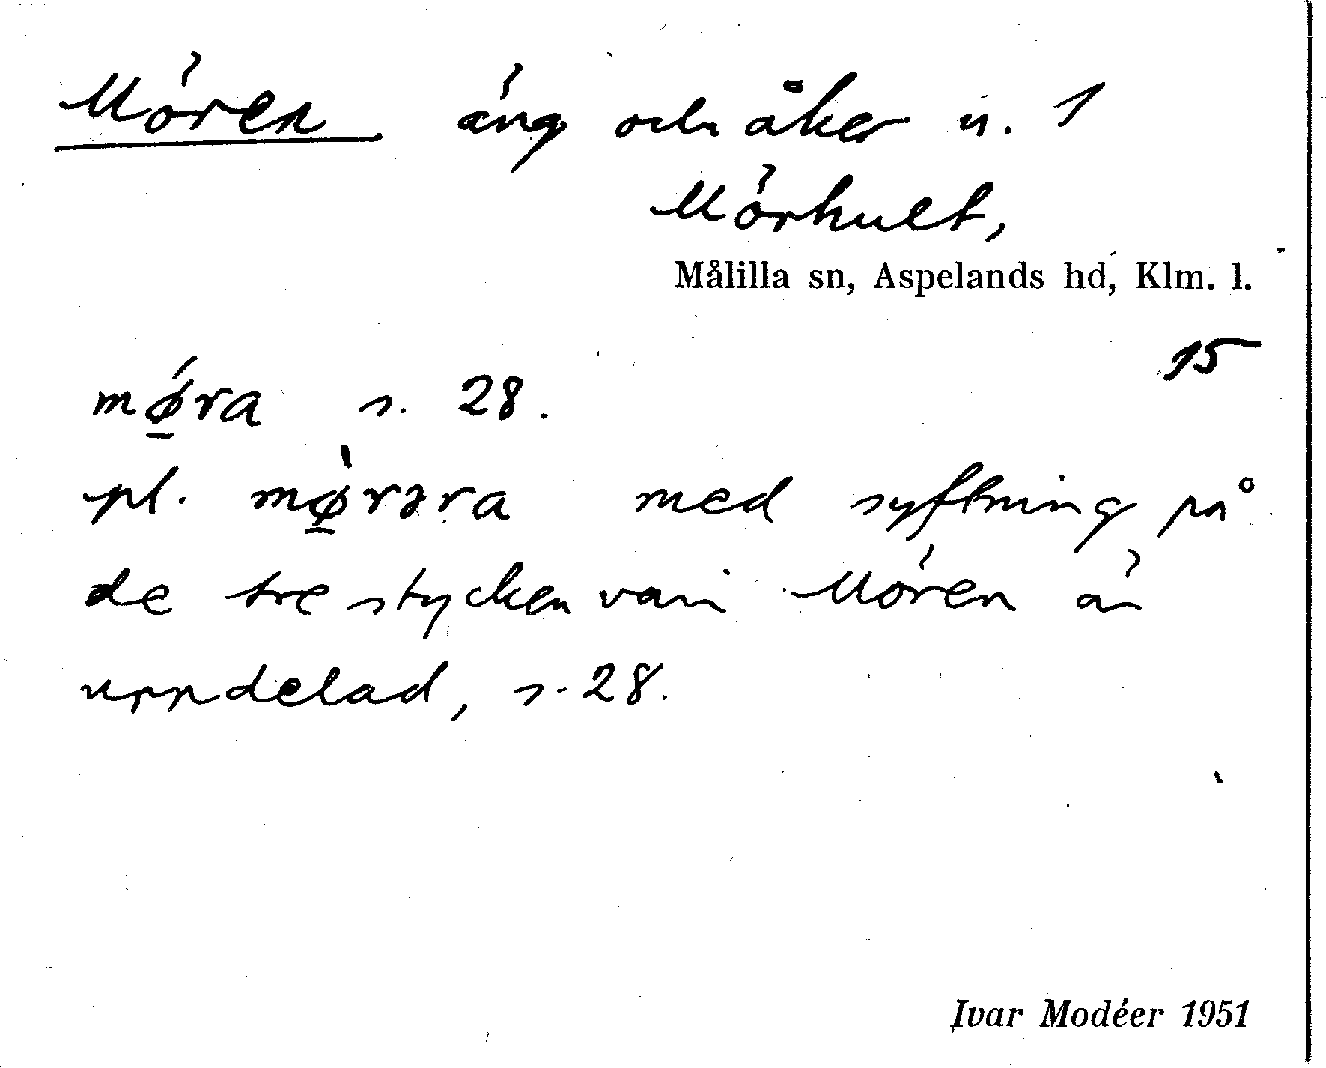 Mören äng och åker u. 1
Mörhult,
Målilla sn, Aspelands hd, Klm. l.
15
mǿ̱ra s. 28.
pl. mø̱̀rəra med syftning på
de tre stycken vari Mören är
uppdelad, s. 28.
Ivar Modéer 1951